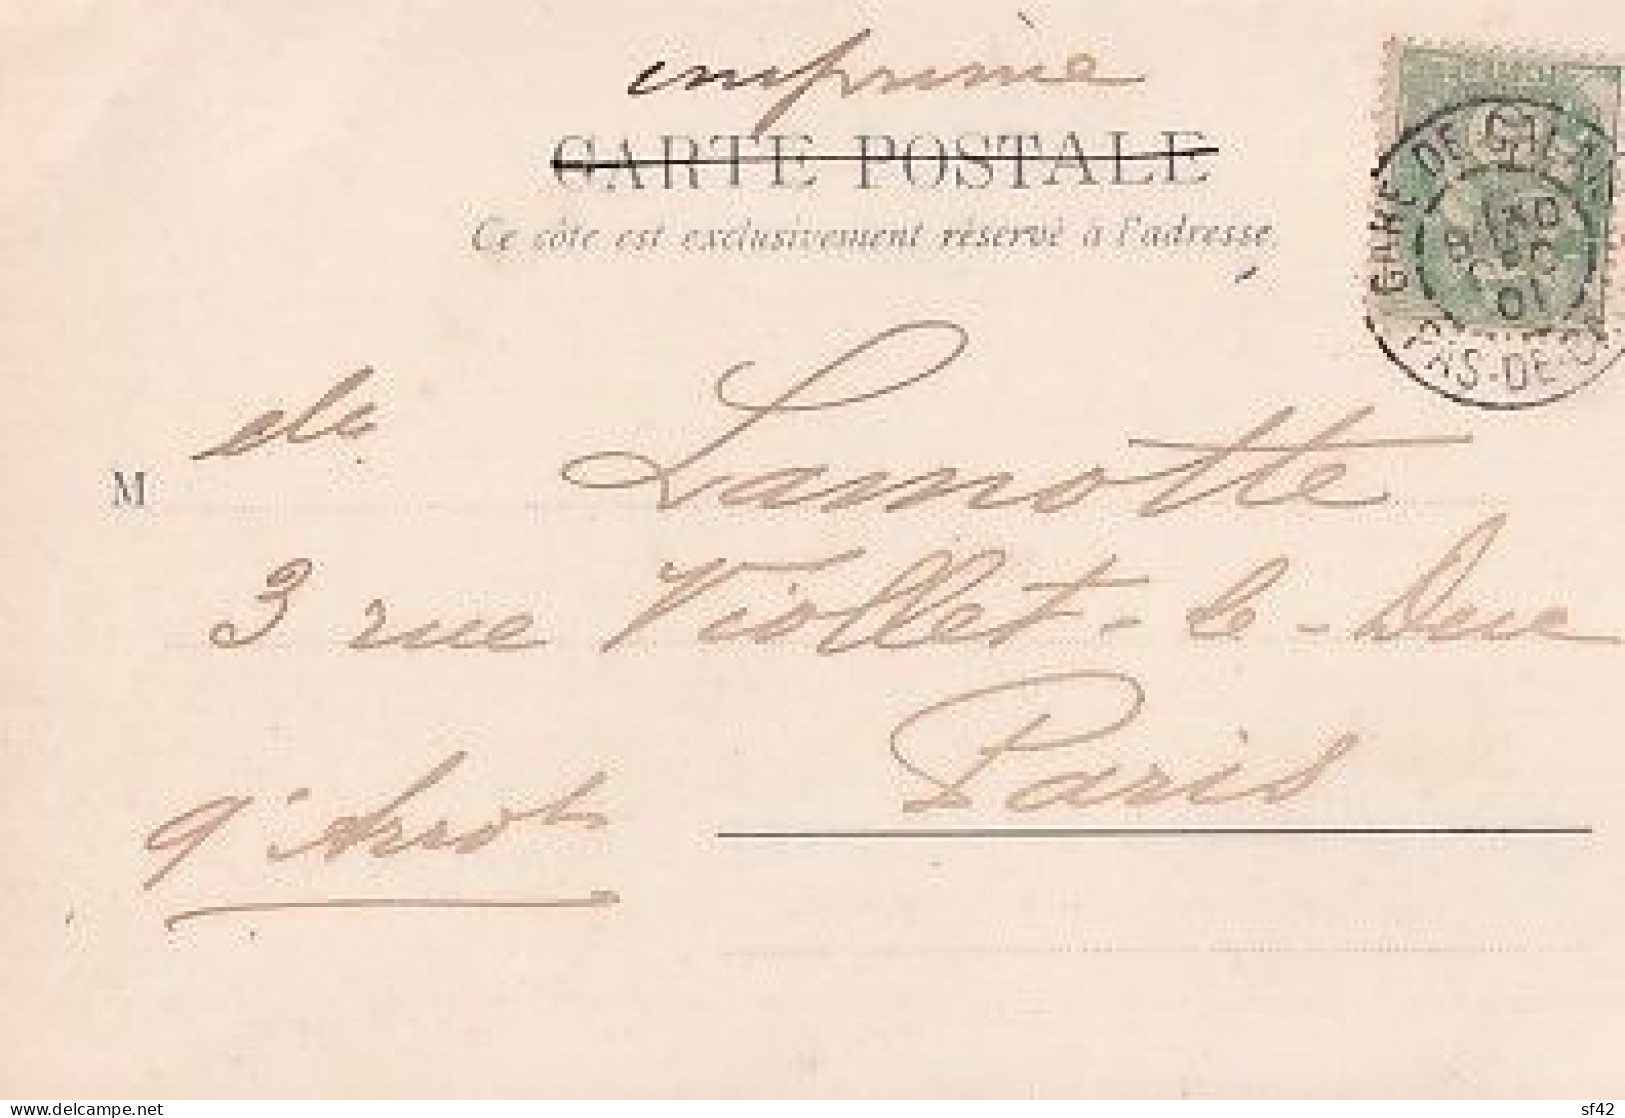 imprimé
CARTE POSTALE
Ce côté est exclusivement réservé à l'adresse.
GARE DE
01
PAS-DE-C
M elle Lamotte
3 rue Viollet-le-Duc
Paris
9e Arrot
delcampe.net
sf42